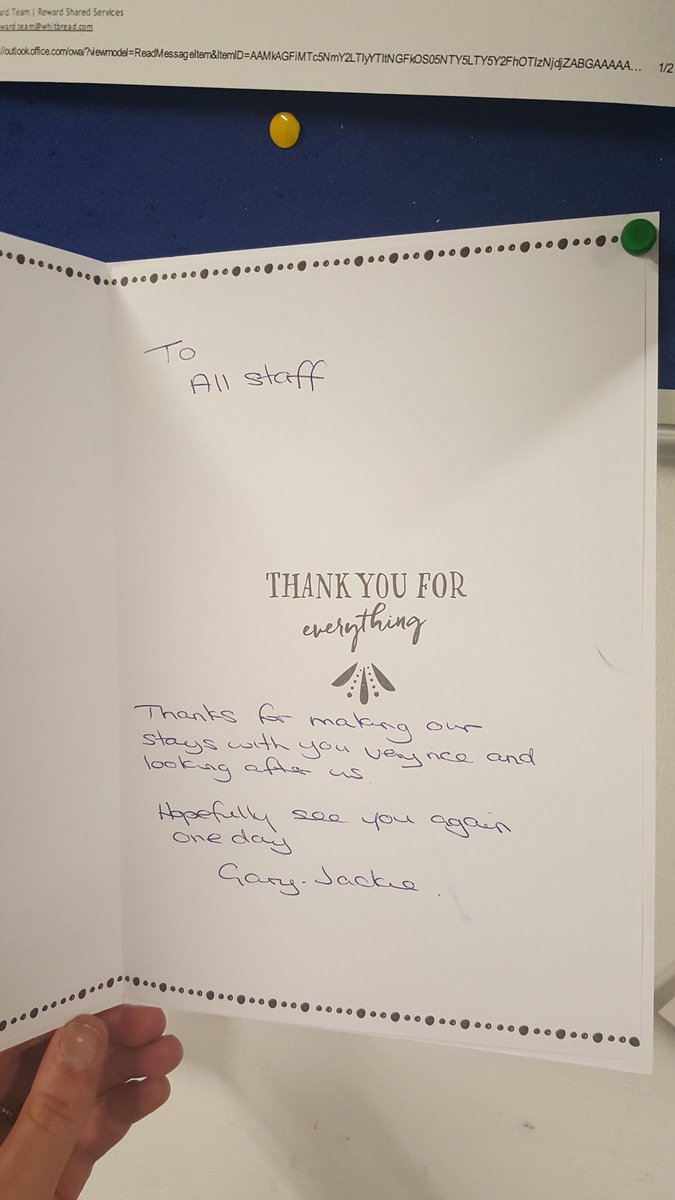 ard Team | Reward Shared Services
ward.team@whitbread.com
//outlook.office.com/owa/?viewmodel=ReadMessageItem&ItemID=AAMkAGFiMTc5NmY2LTIyYTItNGFkOS05NTY5LTY5Y2FhOTIzNjdjZABGAAAAA... 1/2
To
All staff
THANK YOU FOR
everything
Thanks for making our
stays with you very nice and
looking after us.
Hopefully see you again
one day
Gary. Jackie.